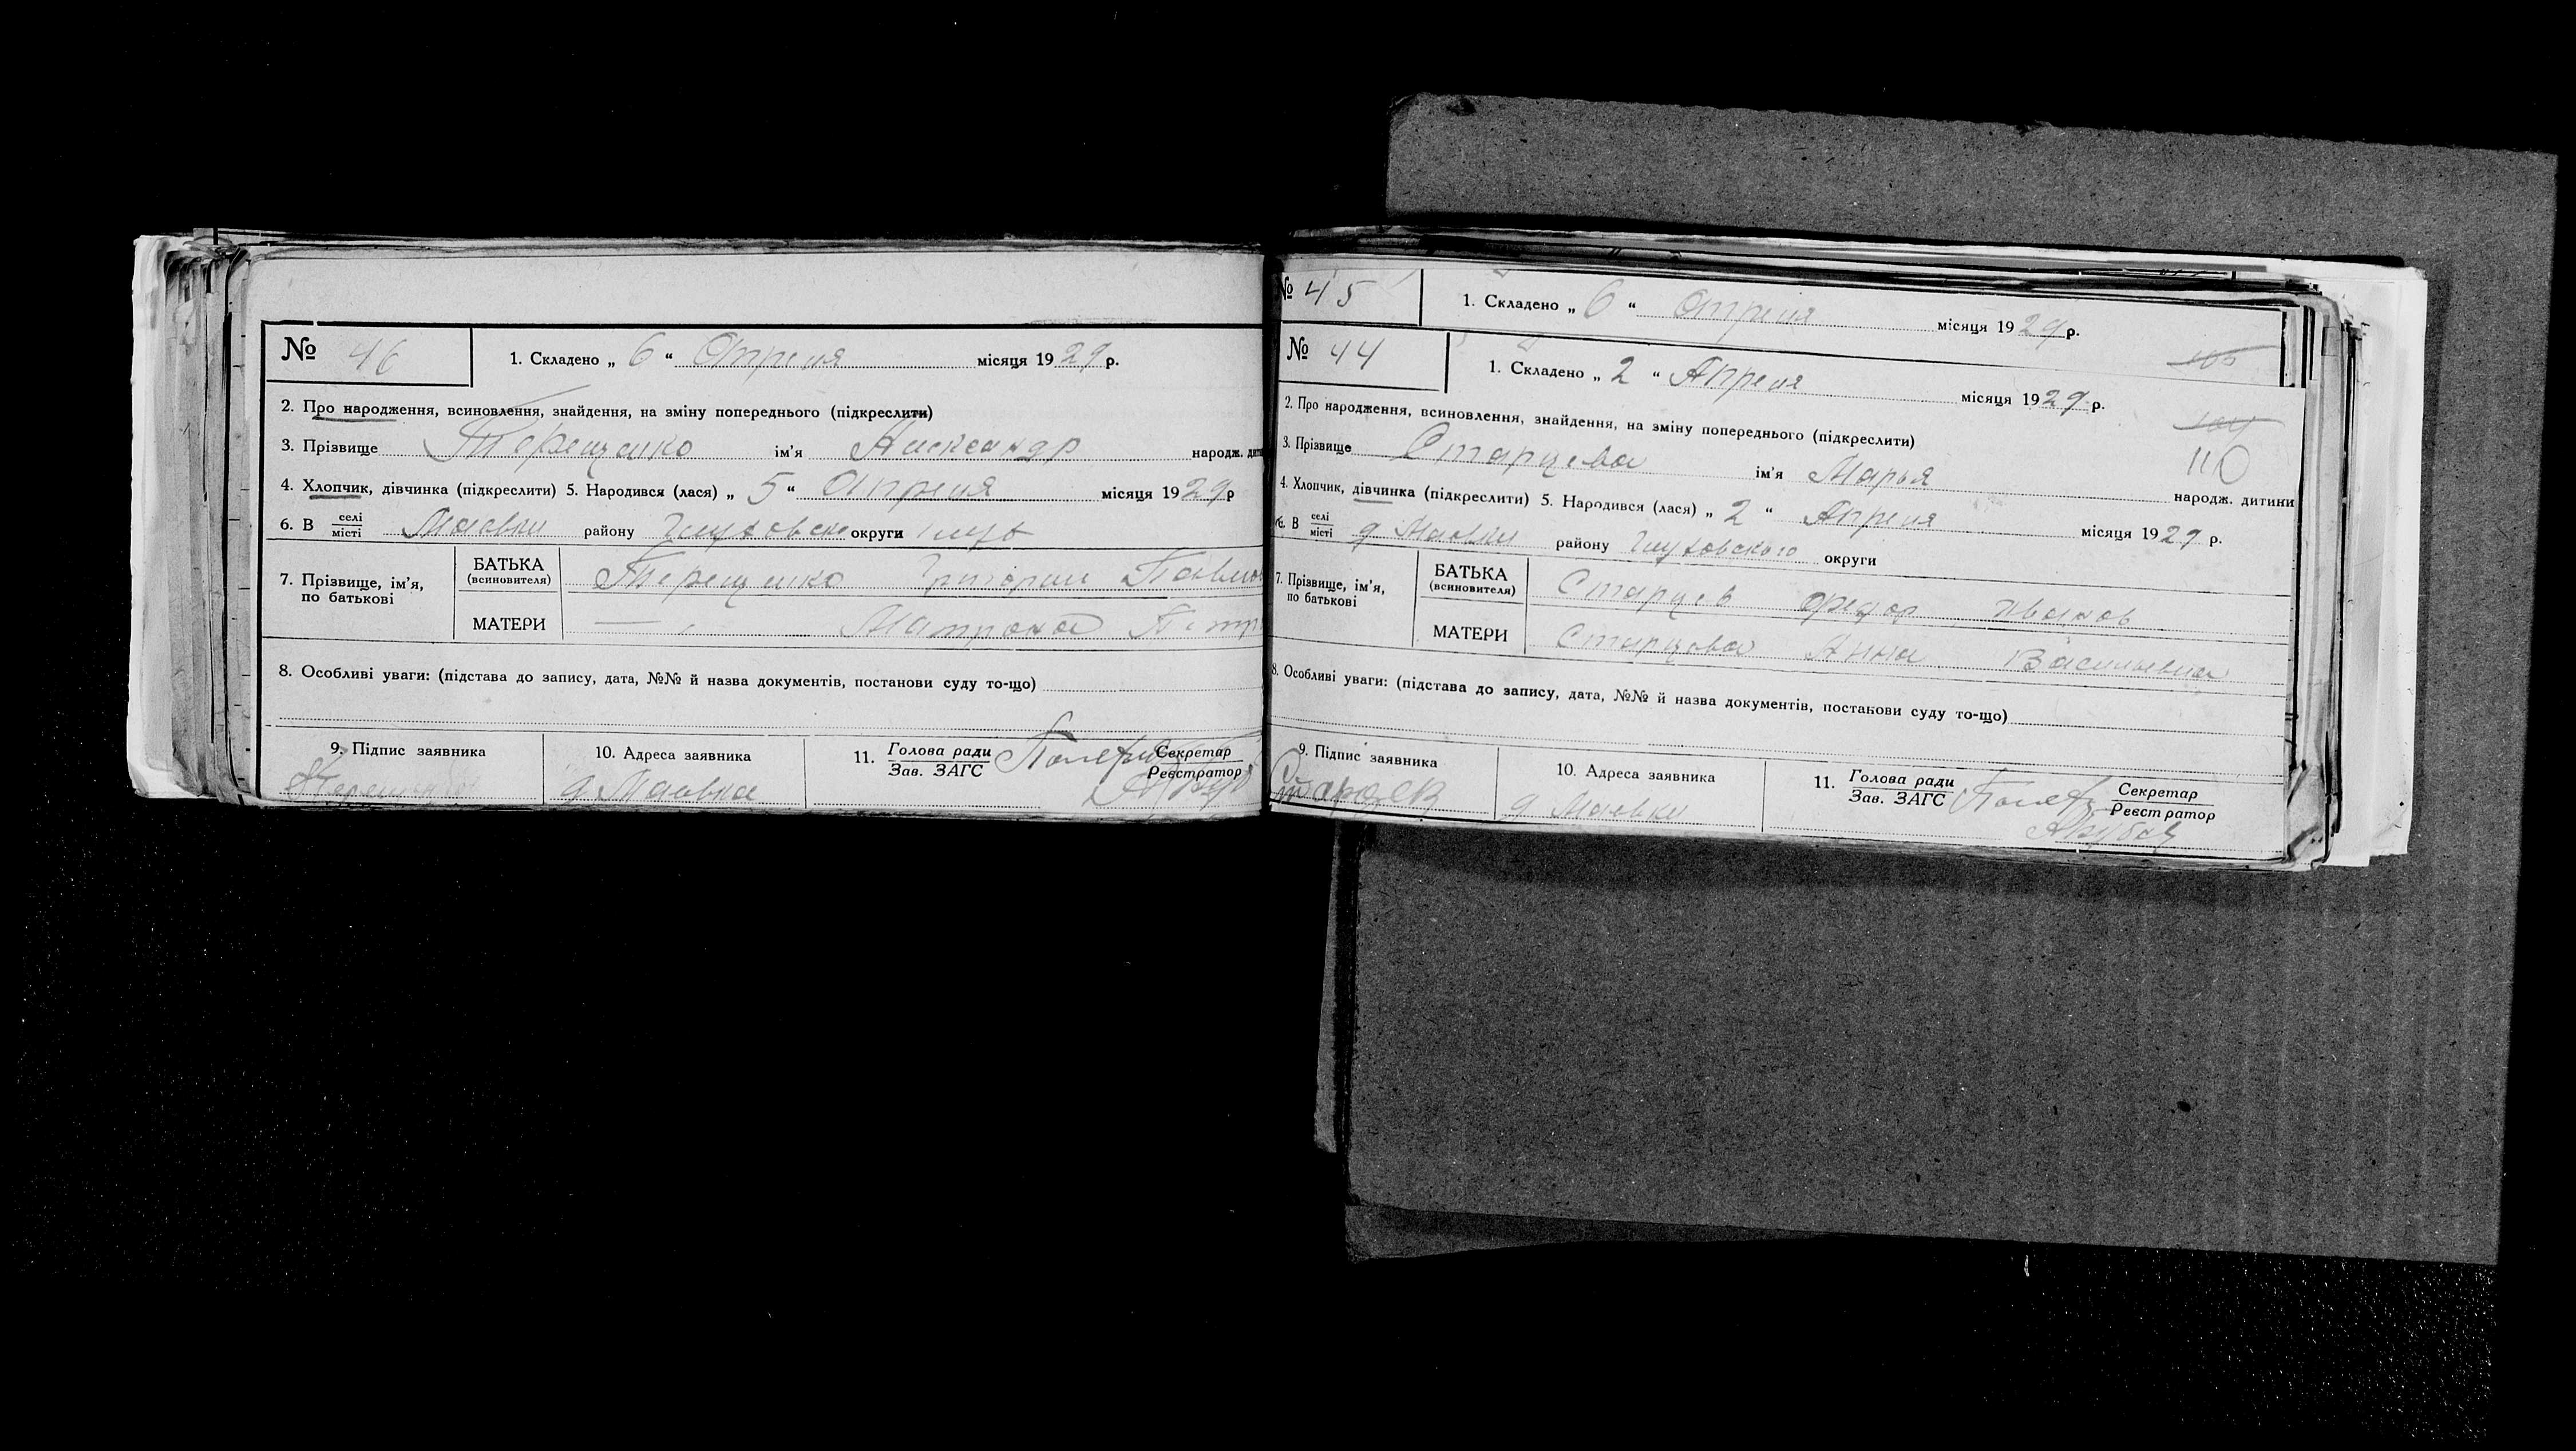 № 46
1. Складено „ 6 “ Апреля місяця 1929 р.
2. Про народження, всиновлення, знайдення, на зміну попереднього (підкреслити)
3. Прізвище Терещенко ім'я Александр народж. дит
4. Хлопчик, дівчинка (підкреслити) 5. Народився (лася) „ 5 “ Апреля місяця 1929 р
6. В селі місті Маевки району Глуховск округи
7. Прізвище, ім'я, по батькові
БАТЬКА (всиновителя) Терещенко Григорий Павлов
МАТЕРИ — Матрона Петр
8. Особливі уваги: (підстава до запису, дата, №№ й назва документів, постанови суду то-що)
9. Підпис заявника
10. Адреса заявника
д Маевка
11. Голова ради
Зав. ЗАГС
Секретар
Реєстратор
№ 45
1. Складено „ 6 “ Апреля місяця 1929 р.
105
№ 44
1. Складено „ 2 “ Апреля місяця 1929 р.
104
110
2. Про народження, всиновлення, знайдення, на зміну попереднього (підкреслити)
3. Прізвище Старцева ім'я Марья народж. дитини
4. Хлопчик, дівчинка (підкреслити) 5. Народився (лася) „ 2 “ Апреля місяця 1929 р.
6. В селі місті д Маевки району Глуховского округи
7. Прізвище, ім'я, по батькові
БАТЬКА (всиновителя) Старцев Федор Иванов
МАТЕРИ Старцова Анна Васильевна
8. Особливі уваги: (підстава до запису, дата, №№ й назва документів, постанови суду то-що)
9. Підпис заявника
Старцев
10. Адреса заявника
д Маевки
11. Голова ради
Зав. ЗАГС
Секретар
Реєстратор